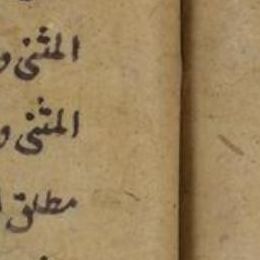 المثنى و
المثنى و
مطلق